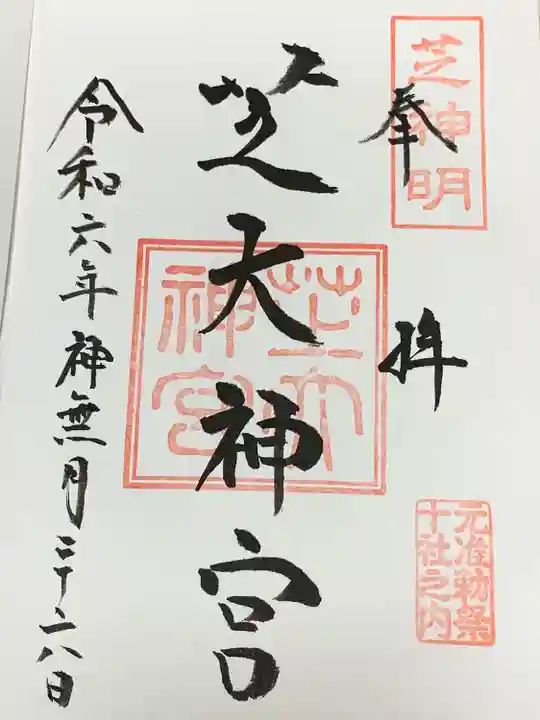 芝神明
奉拝
元准勅祭
十社之内
芝大神宮
芝大
神宮
令和六年神無月日